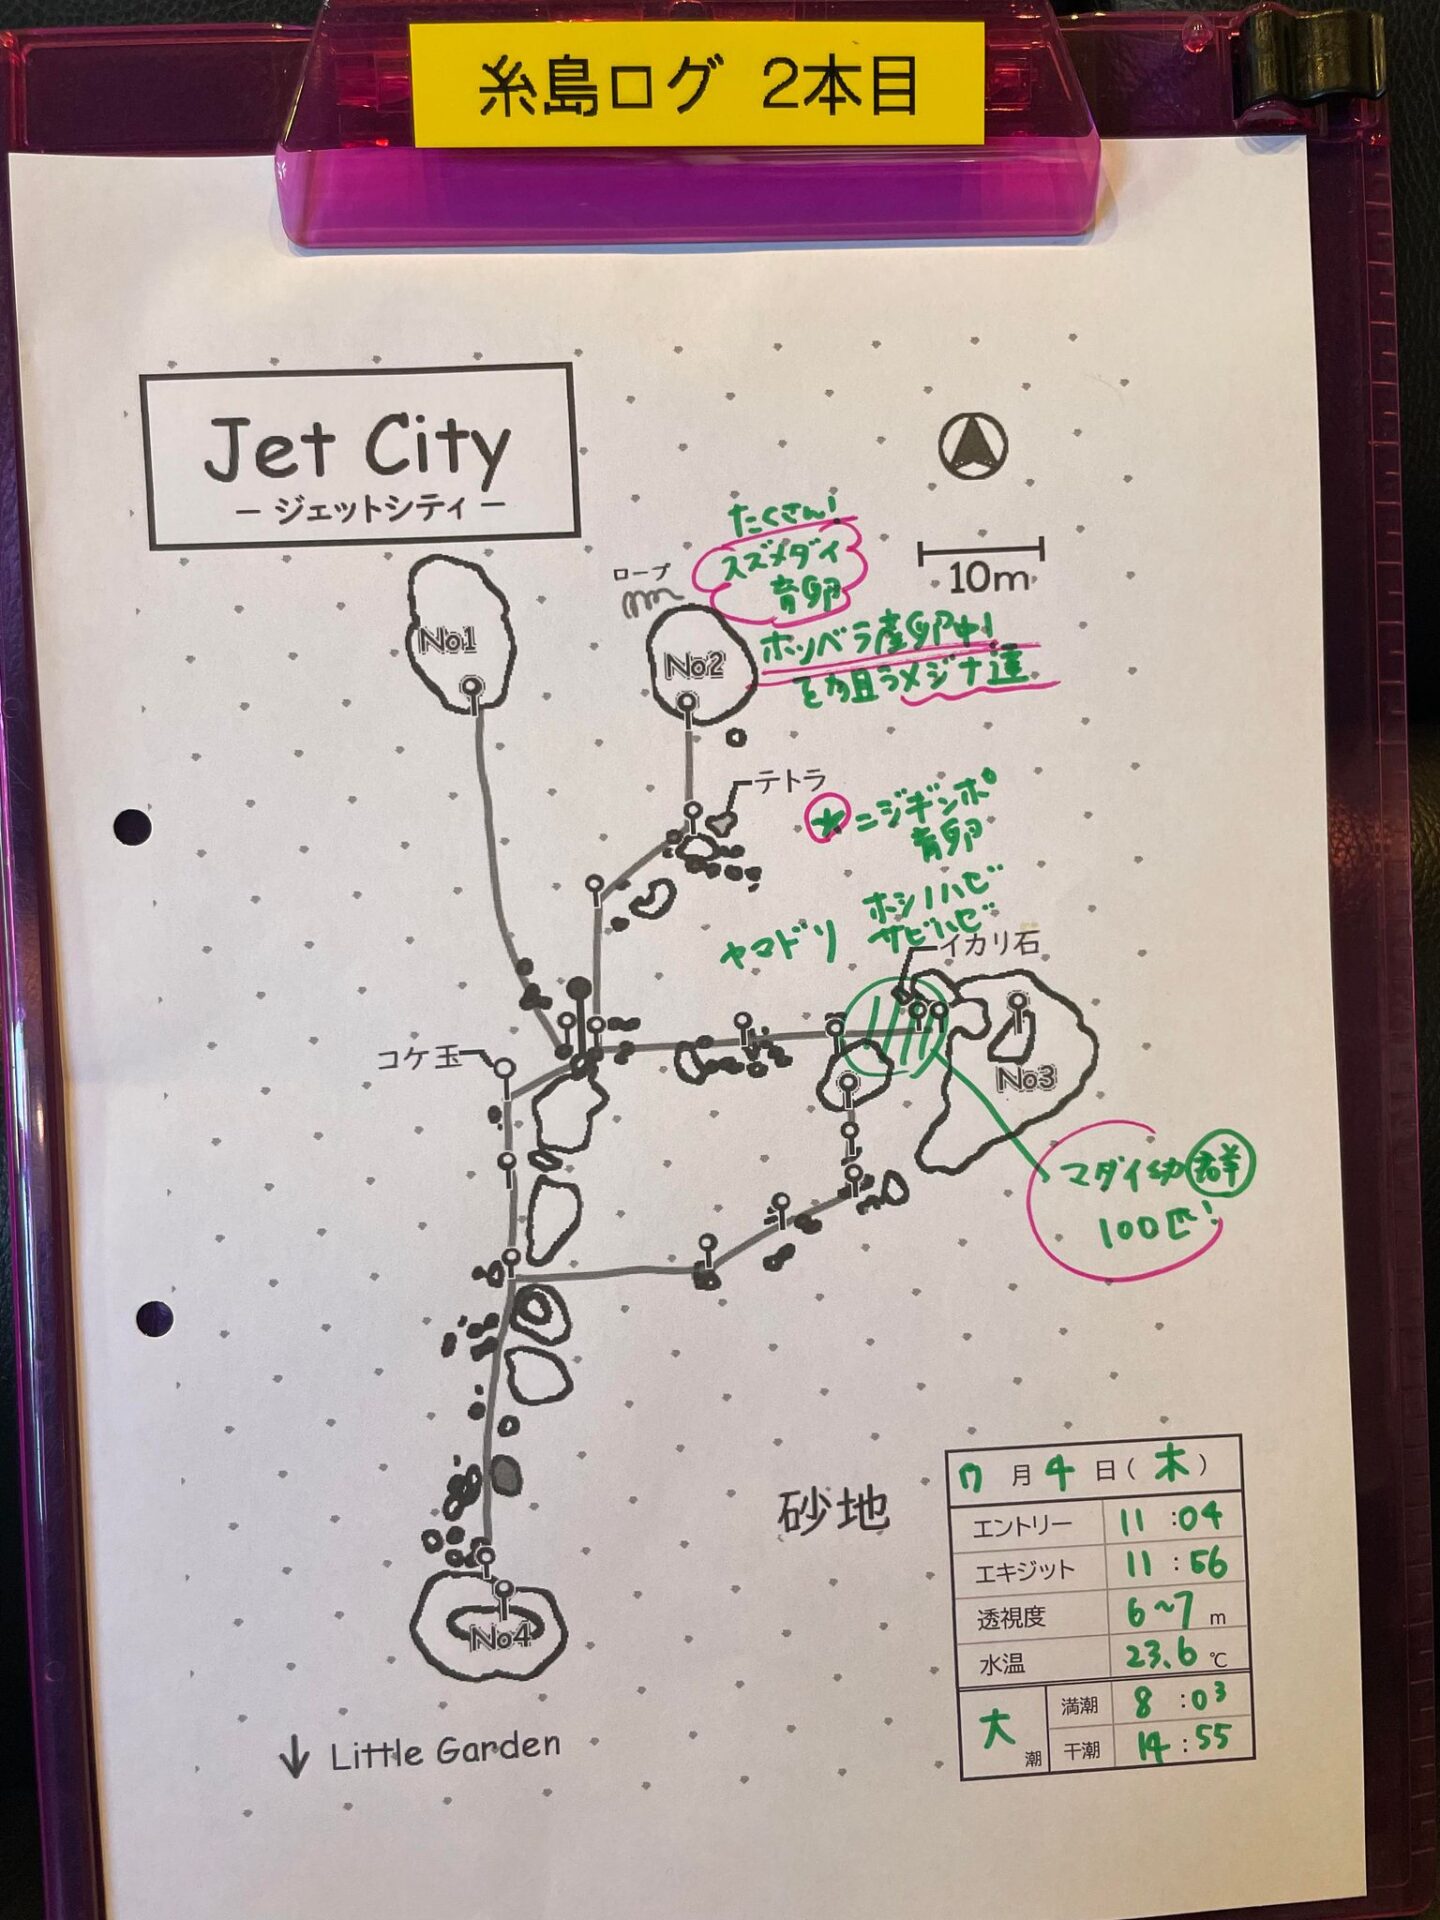 糸島ログ 2本目
Jet City
－ジェットシティ－
10m
たくさん!
スズメダイ
育卵
ロープ
No1
No2
ホンベラ産卵中!
を狙うメジナ達
テトラ
★ニジギンポ
育卵
ホシノハゼ
サビハゼ
ヤマドリ
イカリ石
コケ玉
No3
マダイ幼群
100匹!
砂地
7月4日(木)
エントリー 11:04
エキジット 11:56
透視度 6~7m
水温 23.6℃
大潮
満潮 8:03
干潮 14:55
No4
↓ Little Garden